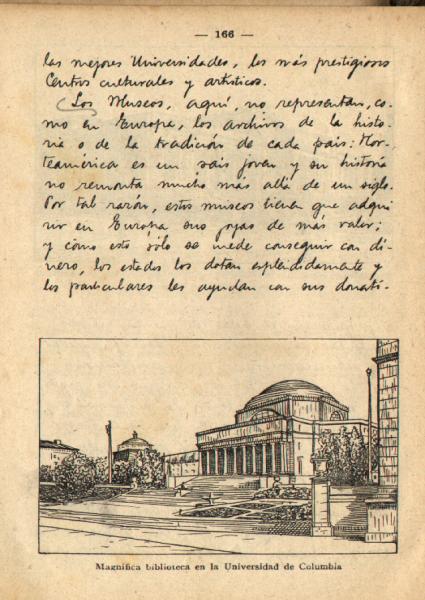 — 166 —
las mejores Universidades, los más prestigiosos
Centros culturales y artísticos.
Los Museos, aquí, no representan, co-
mo en Europa, los archivos de la histo-
ria o de la tradición de cada país: Nor-
teamérica es un país joven y su historia
no remonta mucho más allá de un siglo.
Por tal razón, estos museos tienen que adqui
rir en Europa sus joyas de más valor;
y como esto sólo se puede conseguir con di-
nero, los estados los dotan espléndidamente y
los particulares les ayudan con sus donati-
Magnífica biblioteca en la Universidad de Columbia